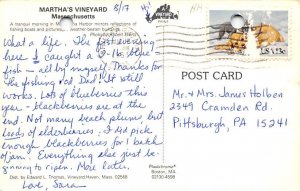 MARTHA'S VINEYARD
Massachusetts
8/17
Hi!
A Martha's Vineyard Harbor mirrors reflections of
fishing boats and picturesque weather-beaten buildings.
What a life. The first evening
here I caught a 2-lb. blue-
fish - all by myself. Thanks for
the fishing rod Dad! It still
works. Lots of blueberries this
year - blackberries are at the
end. Not many beach plums, but
loads of elderberries. I did pick
enough blackberries for 1 batch
of jam. Everything else just be-
ginning to ripen. More later.
Love, Sara
Dist. by Edward L. Thomas, Vineyard Haven, Mass. 02568
Plastichrome
Boston, MA
02130-4698
USA
POST CARD
Mr. & Mrs. James Holben
2349 Cramden Rd.
Pittsburgh, PA 15241